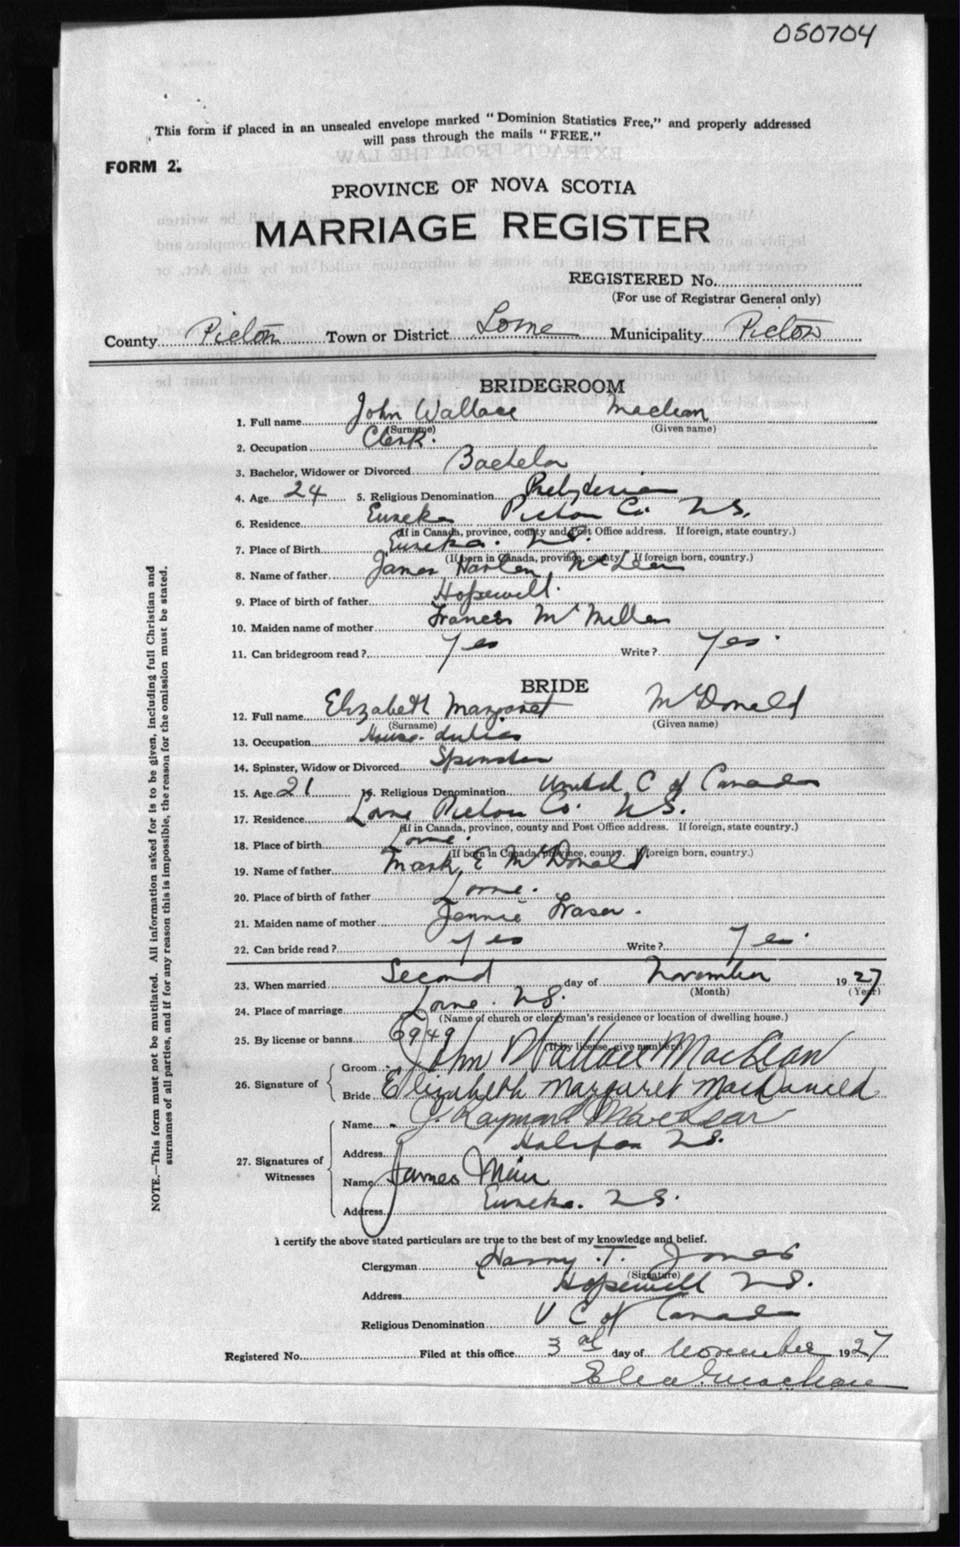 050704
This form if placed in an unsealed envelope marked "Dominion Statistics Free," and properly addressed
will pass through the mails "FREE."
FORM 2.
PROVINCE OF NOVA SCOTIA
MARRIAGE REGISTER
REGISTERED No.
(For use of Registrar General only)
County Pictou Town or District Lorne Municipality Pictou
BRIDEGROOM
1. Full name John Wallace Maclean
(Surname) (Given name)
2. Occupation Clerk.
3. Bachelor, Widower or Divorced Bachelor
4. Age 24 5. Religious Denomination Presbyterian
6. Residence Eureka Pictou Co. N.S.
(If in Canada, province, county and Post Office address. If foreign, state country.)
7. Place of Birth Eureka. N.S.
(If born in Canada, province, county. If foreign born, country.)
8. Name of father James McLean
9. Place of birth of father Hopewell.
10. Maiden name of mother Frances McMillan
11. Can bridegroom read? Yes Write? Yes.
BRIDE
12. Full name Elizabeth Margaret McDonald
(Surname) (Given name)
13. Occupation House duties
14. Spinster, Widow or Divorced Spinster
15. Age 21 16. Religious Denomination United C of Canada
17. Residence Lorne Pictou Co. N.S.
(If in Canada, province, county and Post Office address. If foreign, state country.)
18. Place of birth Lorne.
(If born in Canada, province, county. If foreign born, country.)
19. Name of father Mark E McDonald
20. Place of birth of father Lorne.
21. Maiden name of mother Jennie Fraser.
22. Can bride read? Yes Write? Yes.
23. When married Second day of November 1927
(Month) (Year)
24. Place of marriage Lorne N.S.
(Name of church or clergyman's residence or location of dwelling house.)
25. By license or banns 6949
(If by license, give number)
26. Signature of
Groom John Wallace MacLean
Bride Elizabeth Margaret MacDonald
27. Signatures of Witnesses
Name J. Raymond MacLean
Address Halifax N.S.
Name James Muir
Address Eureka. N.S.
I certify the above stated particulars are true to the best of my knowledge and belief.
Clergyman Harry T. Jones
(Signature)
Address Hopewell N.S.
Religious Denomination U C of Canada
Registered No. Filed at this office 3 day of November 1927
NOTE.—This form must not be mutilated. All information asked for is to be given, including full Christian and
surnames of all parties, and if for any reason this is impossible, the reason for the omission must be stated.